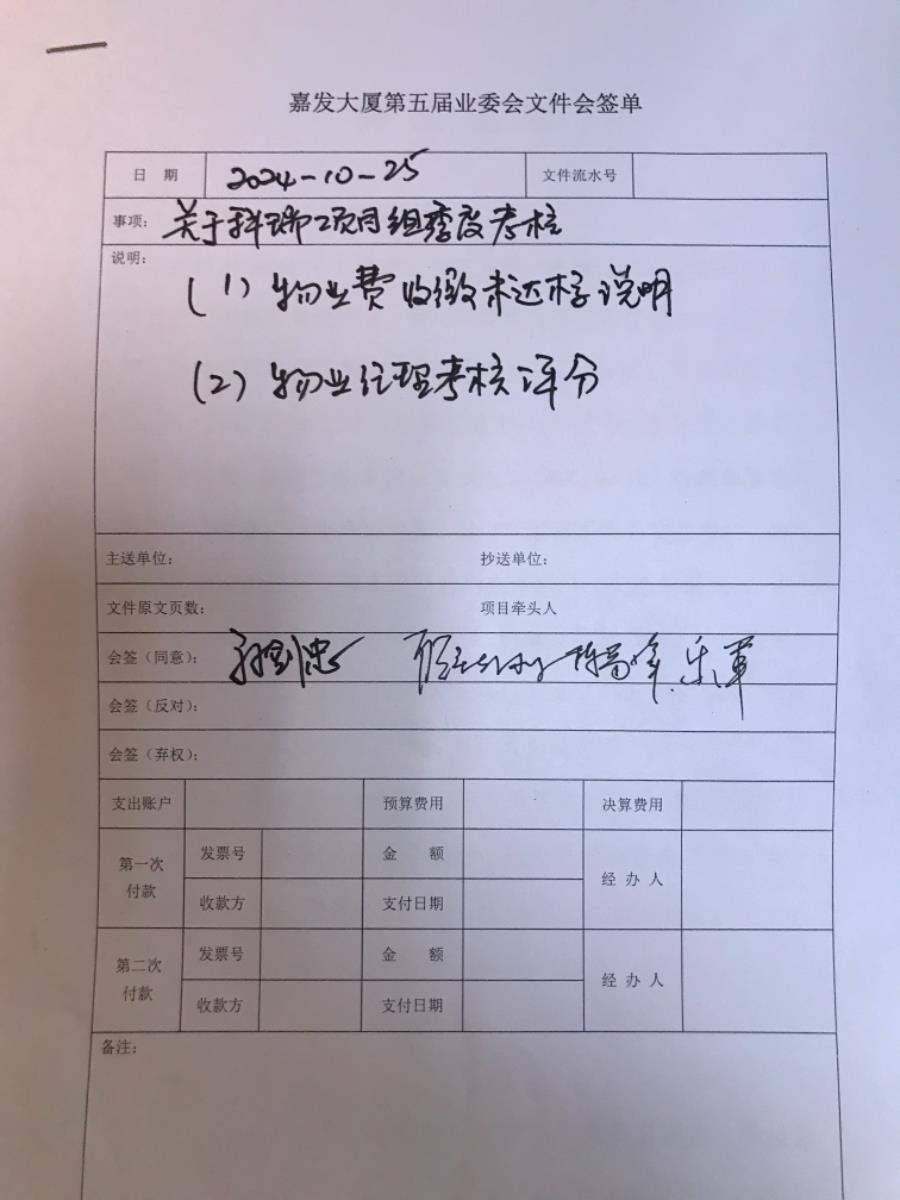 嘉发大厦第五届业委会文件会签单
日 期 2024-10-25 文件流水号
事项： 关于科瑞项目组季度考核
说明：
(1) 物业费收缴未达标说明
(2) 物业经理考核评分
主送单位： 抄送单位：
文件原文页数： 项目牵头人
会签（同意）：
会签（反对）：
会签（弃权）：
支出账户 预算费用 决算费用
第一次付款 发票号 金 额 经 办 人
收款方 支付日期
第二次付款 发票号 金 额 经 办 人
收款方 支付日期
备注：